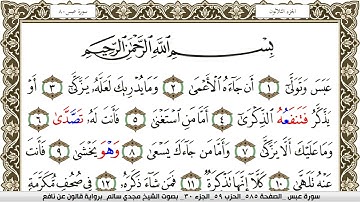 الجزء الثلاثون
سورة عبس ٨٠
بِسْمِ اللَّهِ الرَّحْمَٰنِ الرَّحِيمِ
عَبَسَ وَتَوَلَّىٰ ١ أَن جَاءَهُ الْأَعْمَىٰ ٢ وَمَا يُدْرِيكَ لَعَلَّهُ يَزَّكَّىٰ ٣ أَوْ
يَذَّكَّرُ فَتَنفَعُهُ الذِّكْرَىٰ ٤ أَمَّا مَنِ اسْتَغْنَىٰ ٥ فَأَنتَ لَهُ تَصَّدَّىٰ ٦
وَمَا عَلَيْكَ أَلَّا يَزَّكَّىٰ ٧ وَأَمَّا مَن جَاءَكَ يَسْعَىٰ ٨ وَهْوَ يَخْشَىٰ ٩ فَأَنتَ
عَنْهُ تَلَهَّىٰ ١٠ كَلَّا إِنَّهَا تَذْكِرَةٌ ١١ فَمَن شَاءَ ذَكَرَهُ ١٢ فِي صُحُفٍ مُّكَرَّمَةٍ
سورة عبس الصفحة ٥٨٥ الحزب ٥٩ الجزء ٣٠ - بصوت الشيخ مجدي سالم برواية قالون عن نافع